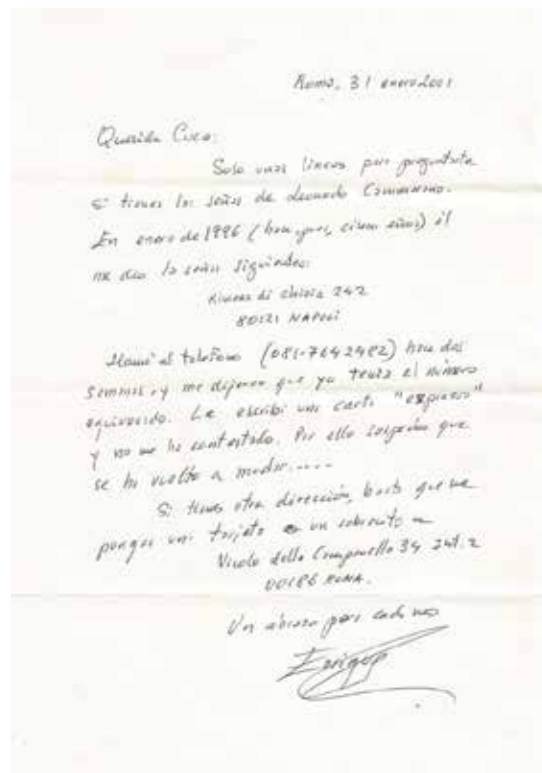 Roma, 31 enero 2001
Querida Cuca:
Solo unas líneas para preguntarte
si tienes las señas de Leonardo Cammarano.
En enero de 1996 (hace, pues, cinco años) él
me dio las señas siguientes:
Riviera di Chiaia 242
80121 NAPOLI
Llamé al teléfono (081-7642482) hace dos
semanas, y me dijeron que yo tenía el número
equivocado. Le escribí una carta "espresso"
y no me ha contestado. Por ello sospecho que
se ha vuelto a mudar.....
Si tienes otra dirección, basta que me
pongas una tarjeta o un sobrecito a
Vicolo della Campanella 34 int. 2
00186 ROMA.
Un abrazo para cada uno
Enrique